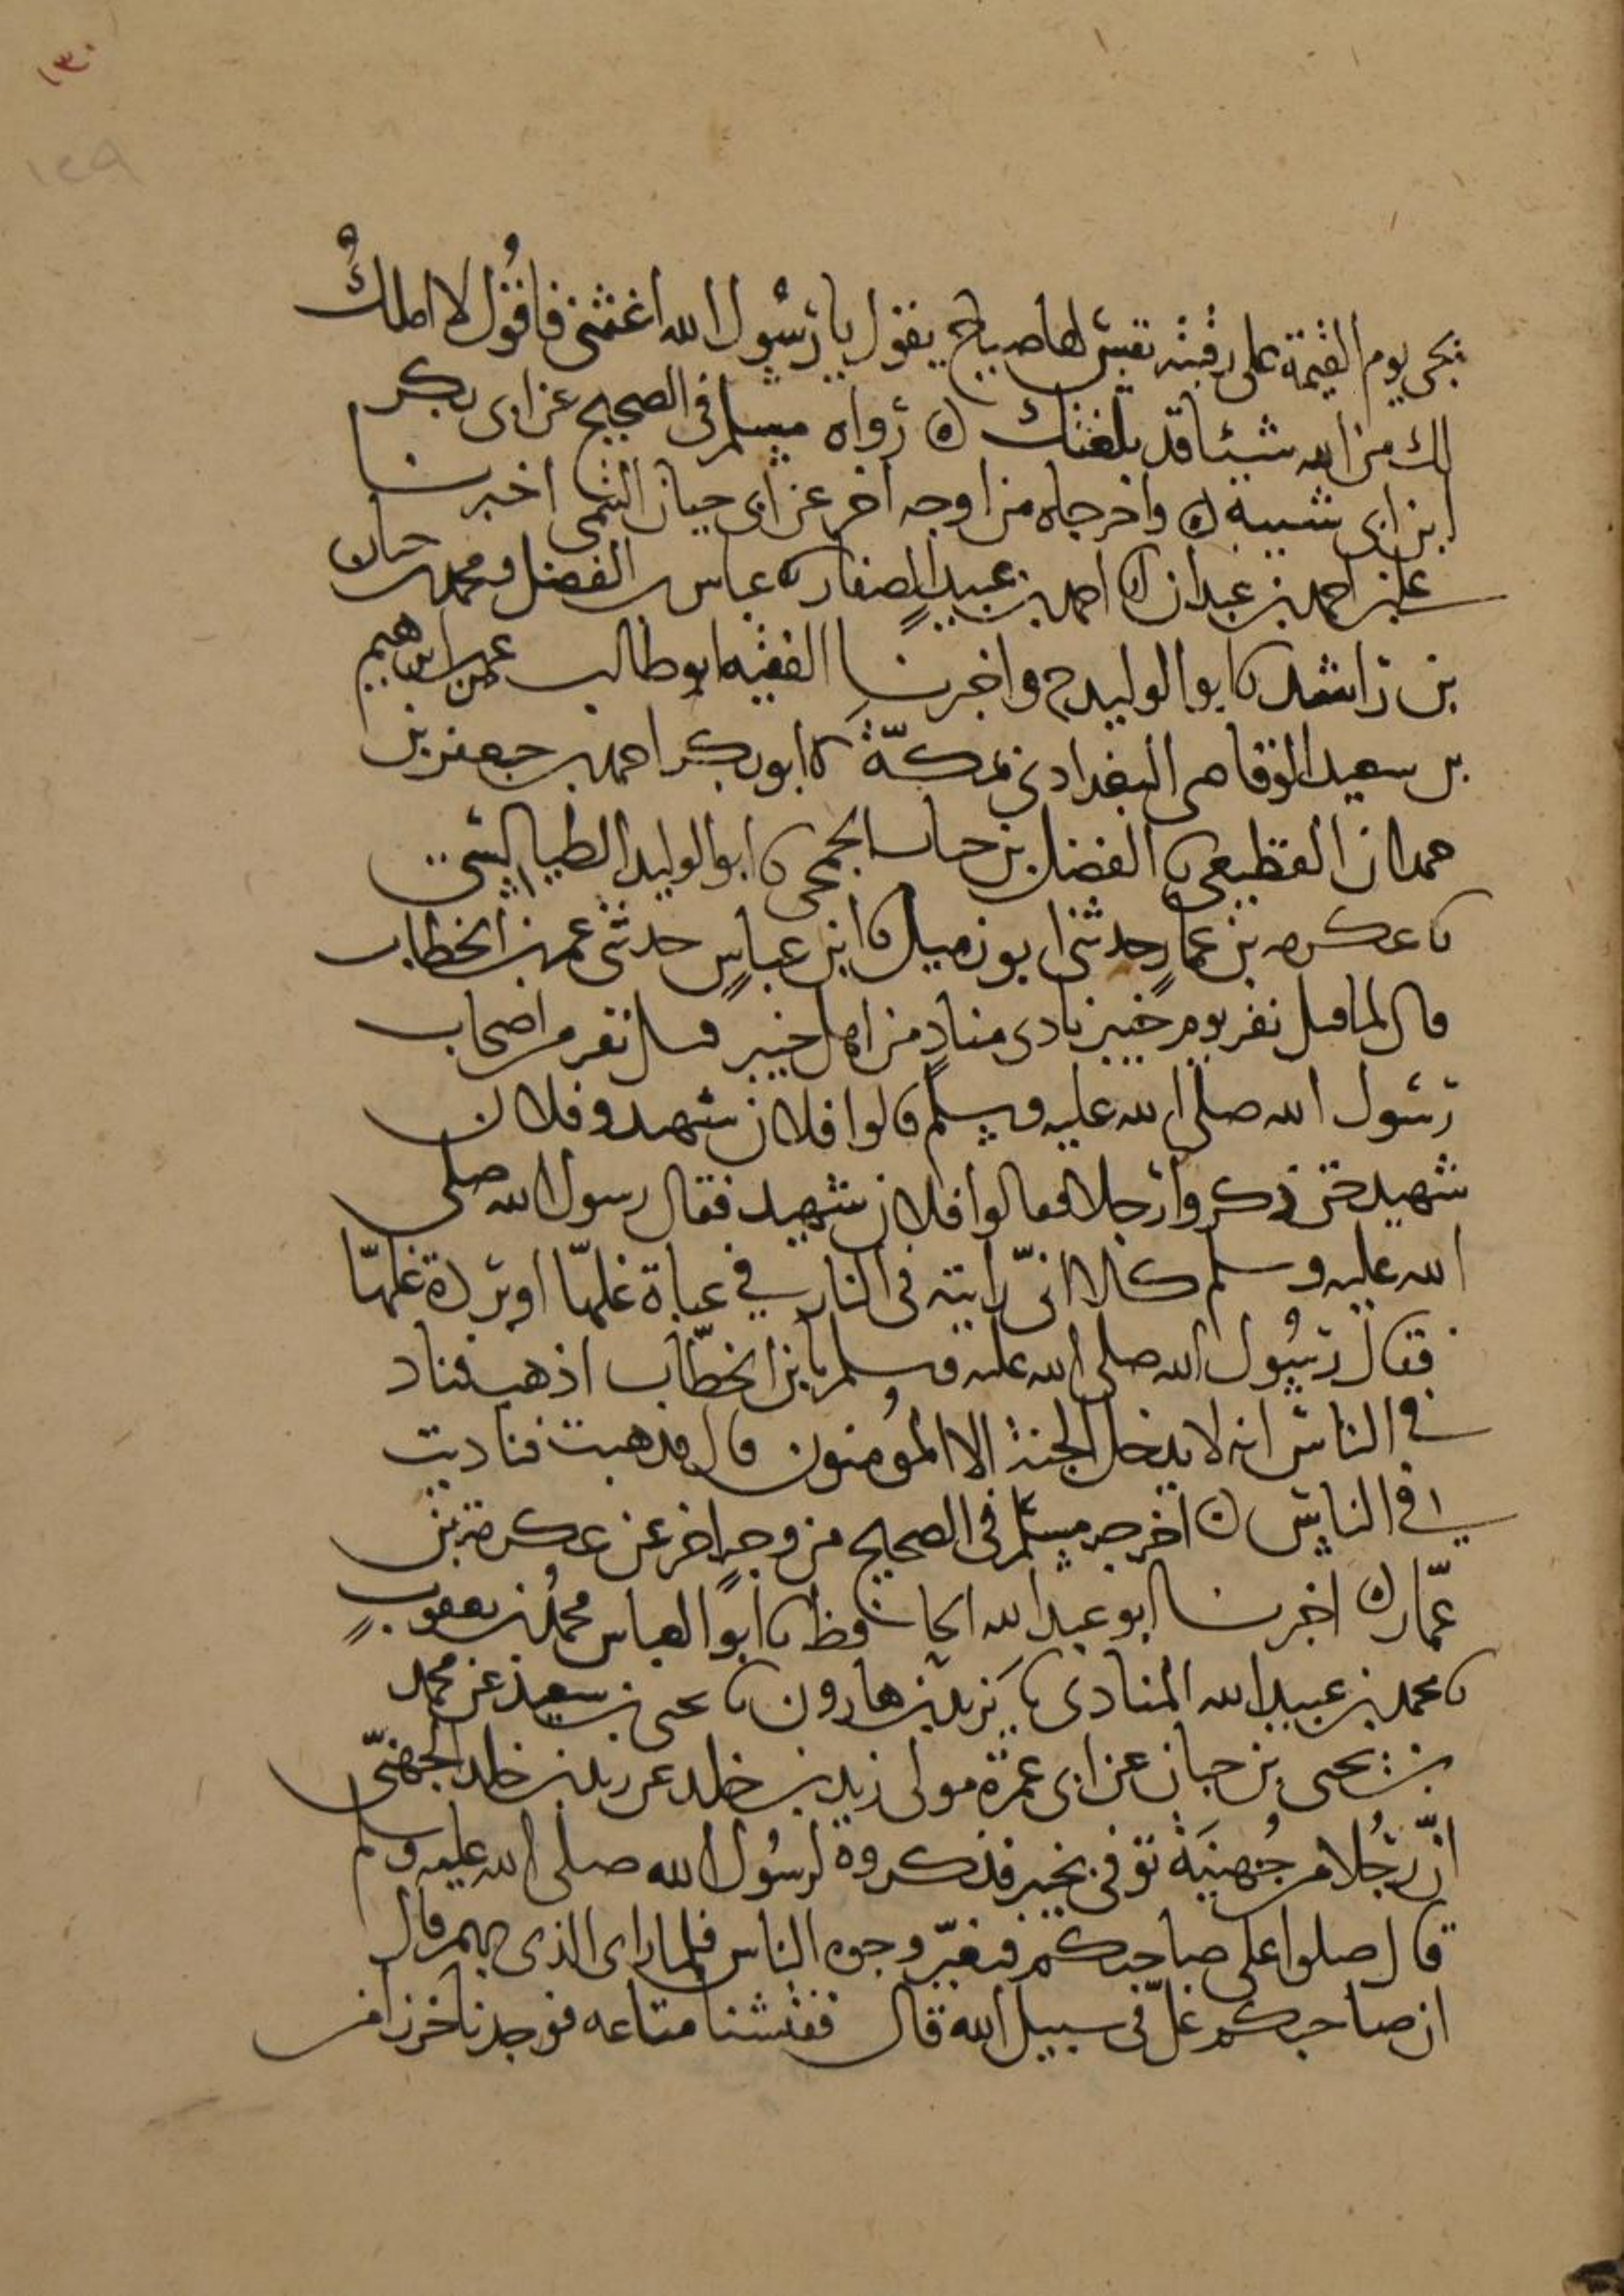 ١٣٠
١٢٩
يجى يوم القيمة على رقبته نفس لها صياح يقول يا رسول الله اغثنى فاقول لا املك
لك من الله شيئا قد بلغتك ه رواه مسلم فى الصحيح عن ابى بكر
ابن ابى شيبة ه واخرجاه من اوجه اخر عن ابى حيان التيمى اخبرنا
على بن احمد بن عبدان انا احمد بن عبيد الصفار نا عباس بن الفضل ومحمد بن حيان
بن راشد نا ابو الوليد ح واخبرنا الفقيه ابو طالب عمر بن ابراهيم
بن سعيد الوقاصى البغدادى بمكة نا ابو بكر احمد بن جعفر بن
حمدان القطيعى نا الفضل بن حباب الجمحى نا ابو الوليد الطيالسى
نا عكرمه بن عمار حدثنى ابو زميل نا ابن عباس حدثنى عمر بن الخطاب
قال لما قتل نفر يوم خيبر نادى مناد من اهل خيبر قتل نفر من اصحاب
رسول الله صلى الله عليه وسلم قالوا فلان شهيد وفلان
شهيد حتى ذكروا رجلا فقالوا فلان شهيد فقال رسول الله صلى
الله عليه وسلم كلا انى رايته فى النار فى عباة غلها او بردة غلها
فقال رسول الله صلى الله عليه وسلم يا بن الخطاب اذهب فناد
فى الناس انه لا يدخل الجنة الا المؤمنون قال فذهبت فناديت
فى الناس ه اخرجه مسلم فى الصحيح من وجه اخر عن عكرمة بن
عمار ه اخبرنا ابو عبد الله الحافظ نا ابو العباس محمد بن يعقوب
نا محمد بن عبيد الله المنادى نا يزيد بن هارون نا يحيى بن سعيد عن محمد
بن يحيى بن حبان عن ابى عمرة مولى زيد بن خلد عن زيد بن خلد الجهنى
ان رجلا من جهينة توفى بخيبر فذكروه لرسول الله صلى الله عليه وسلم
قال صلوا على صاحبكم فتغير وجوه الناس فلما راى الذى بهم قال
ان صاحبكم غل فى سبيل الله قال ففتشنا متاعه فوجدنا خرزا من